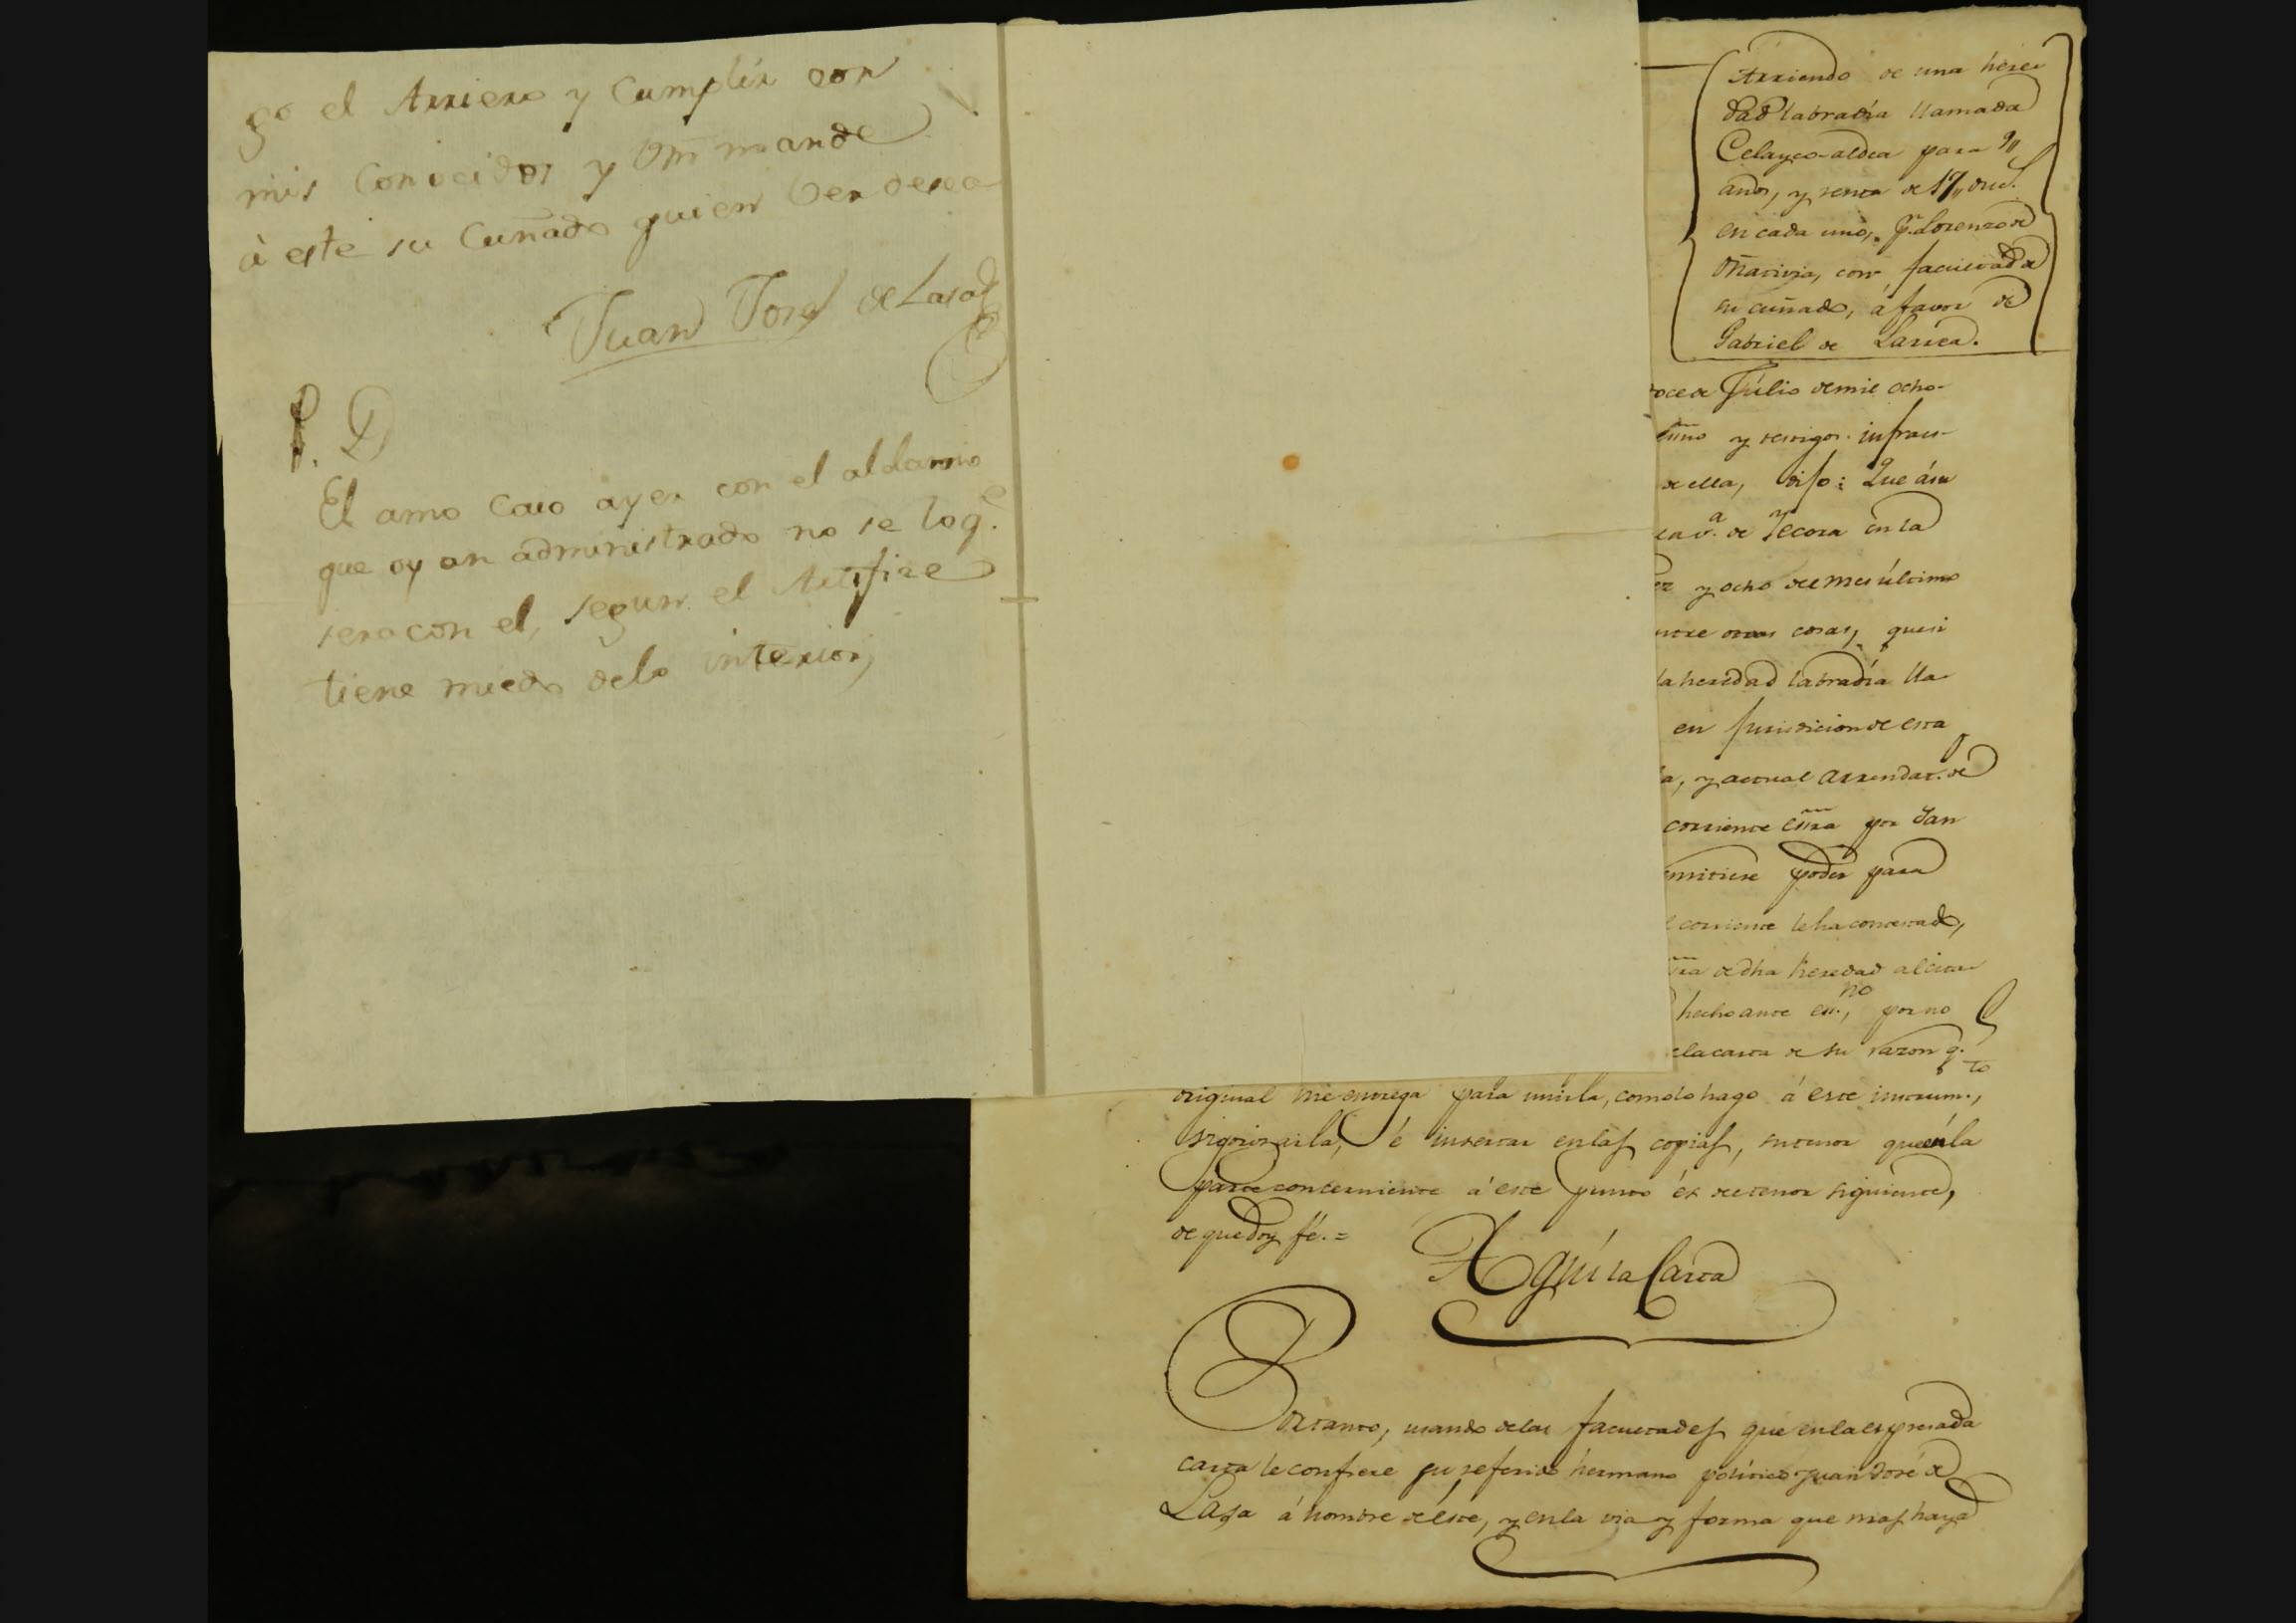 go el Arriero y Cumplir con
mis Conocidos y Vm mande
à este su Cuñado quien Ver desea
Juan Josef de Lasa
P. D
El amo Caio ayer con el aldamio
que oy an administrado no se log.e
sera con el, segun el Artifize
tiene miedo de lo interior,
Arriendo de una here
dad labradía llamada
Celayeo-aldea para 9,,
años, y renta de 17,, duc.s
en cada uno, p.r Lorenzo de
Oñativia, con facultad de
su cuñado, á favor de
Gabriel de Larrea.
oce de Júlio de mil ocho-
y testigos infraes-
de ella, dijo: Que á su
la v.a de Yecora en la
ez y ocho del mes último
entre otras cosas, que si
la heredad labradía lla-
en jurisdicion de esta
a, y actual arrendat.o de
corriente por San
mitiese poder para
corriente le ha contestado,
de dha heredad al cita-
hecho ante es.no, por no
la carta de su razon q.e
original me entrega para unirla, como lo hago á este instrum.to,
é insertar en las copias, su tenor que en la
parte concerniente á este punto és del tenor siguiente,
de que doy fé.=
Aquí la Carta
Portanto, usando de las facultades que en la espresada
carta le confiere su referido hermano político Juan José de
Lasa á nombre de éste, y en la via y forma que mas haya